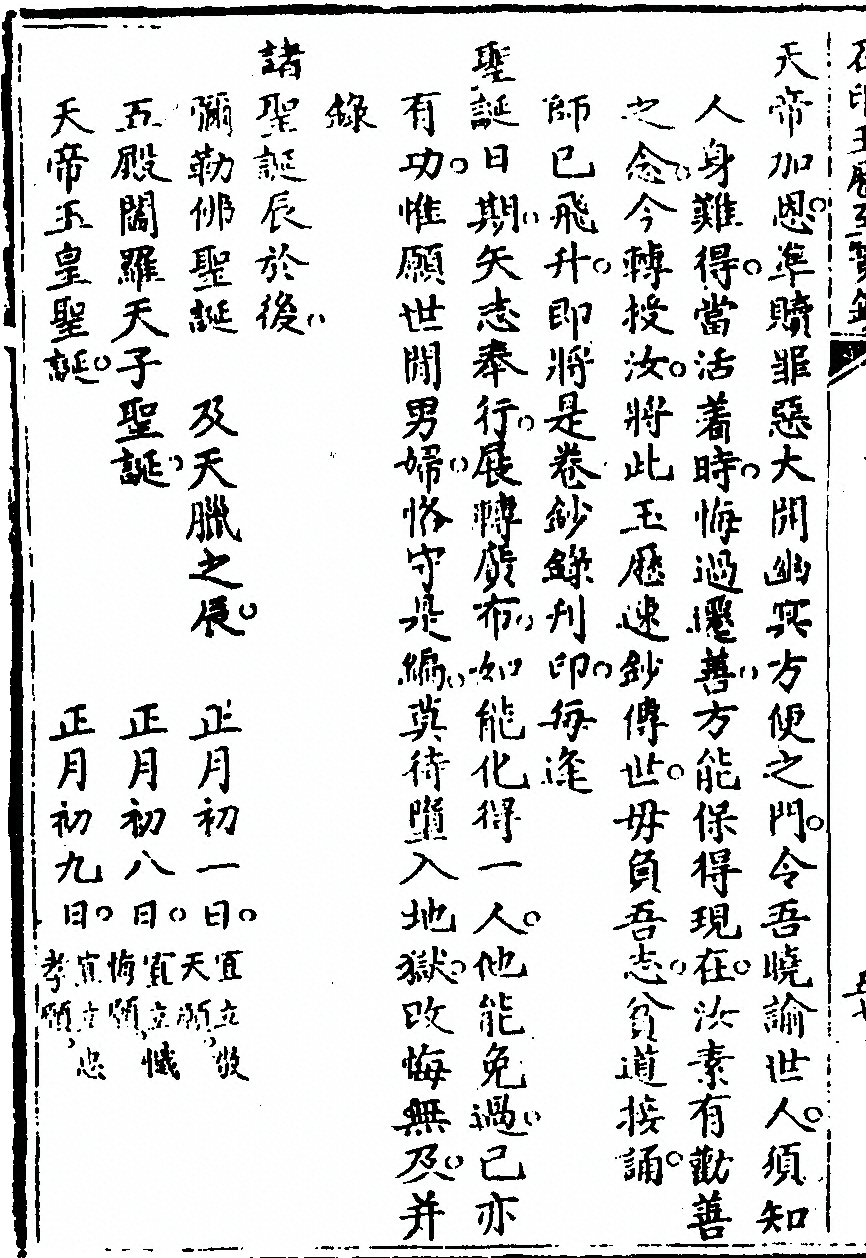 天帝加恩。準贖罪惡大開幽冥方便之門。令吾曉諭世人。須知
人身難得。當活着時。悔過遷善。方能保得現在。汝素有勸善
之念。今轉授汝。將此玉歷速鈔傳世。毋負吾志。貧道接誦。
師已飛升。即將是卷鈔錄刋印。每逢
聖誕日期。矢志奉行。展轉廣布。如能化得一人。他能免過。己亦
有功。惟願世閒男婦。恪守是編。莫待墮入地獄。改悔無及。并
錄
諸聖誕辰於後。
彌勒佛聖誕 及天臘之辰。 正月初一日。 宜立敬天願。
五殿閻羅天子聖誕。 正月初八日。 宜立懺悔願。
天帝玉皇聖誕。 正月初九日。 宜立忠孝願。